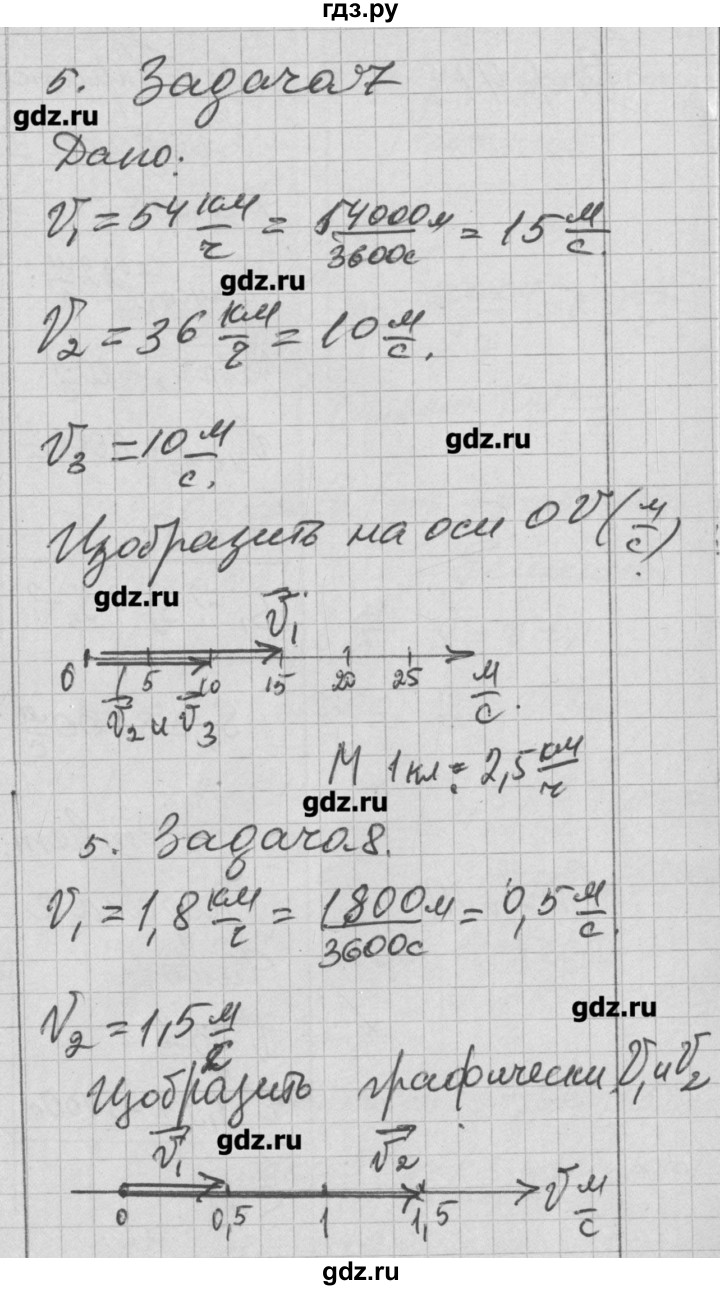 гдз.ру
5. Задача 7
gdz.ru
Дано:
V₁ = 54 км/ч = 54000м/3600с = 15 м/с.
gdz.ru
V₂ = 36 км/ч = 10 м/с.
V₃ = 10 м/с.
gdz.ru
Изобразить на оси OV (м/с).
gdz.ru
V₁
0 5 10 15 20 25 м/с.
V₂ и V₃
М 1 кл: 2,5 км/ч
gdz.ru
5. Задача 8.
V₁ = 1,8 км/ч = 1800м/3600с = 0,5 м/с.
gdz.ru
V₂ = 1,5 м/с
Изобразить графически V₁ и V₂
gdz.ru
V₁ V₂
0 0,5 1 1,5 V м/с
gdz.ru